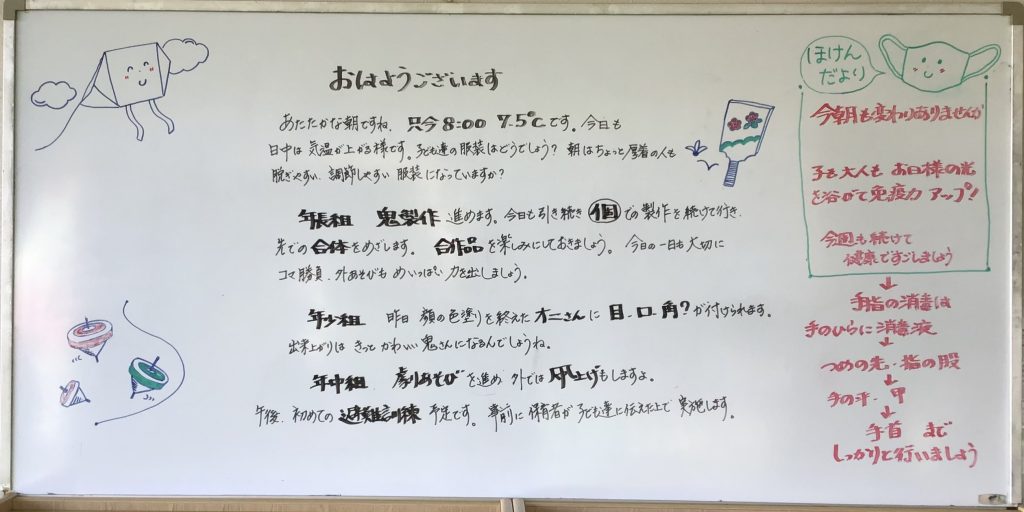 おはようございます
あたたかな朝ですね、只今8:00 7.5℃です。今日も
日中は気温が上がる様です。子ども達の服装はどうでしょう？朝はちょっと厚着の人も
脱ぎやすい、調節しやすい服装になっていますか？
年長組 鬼製作 進めます。今日も引き続き 個 での製作を続けて行き、
先での合体をめざします。合作品を楽しみにしておきましょう。今日の一日も大切に
コマ勝負、外あそびも めいっぱい力を出しましょう。
年少組 昨日 顔の色塗りを終えたオニさんに 目、口、角？が付けられます。
出来上がりは きっと かわいい鬼さんになるんでしょうね。
年中組 劇あそびを進め 外では凧上げもしますよ。
午後、初めての避難訓練 予定です。事前に保育者が子ども達に伝えた上で実施します。
ほけん
だより
今朝も変わりありませんが
子も大人も お日様の光
を浴びて免疫力アップ！
今週も続けて
健康ですごしましょう
↓
手指の消毒は
手のひらに消毒液
↓
つめの先・指の股
↓
手の平・甲
↓
手首 まで
しっかりと行いましょう